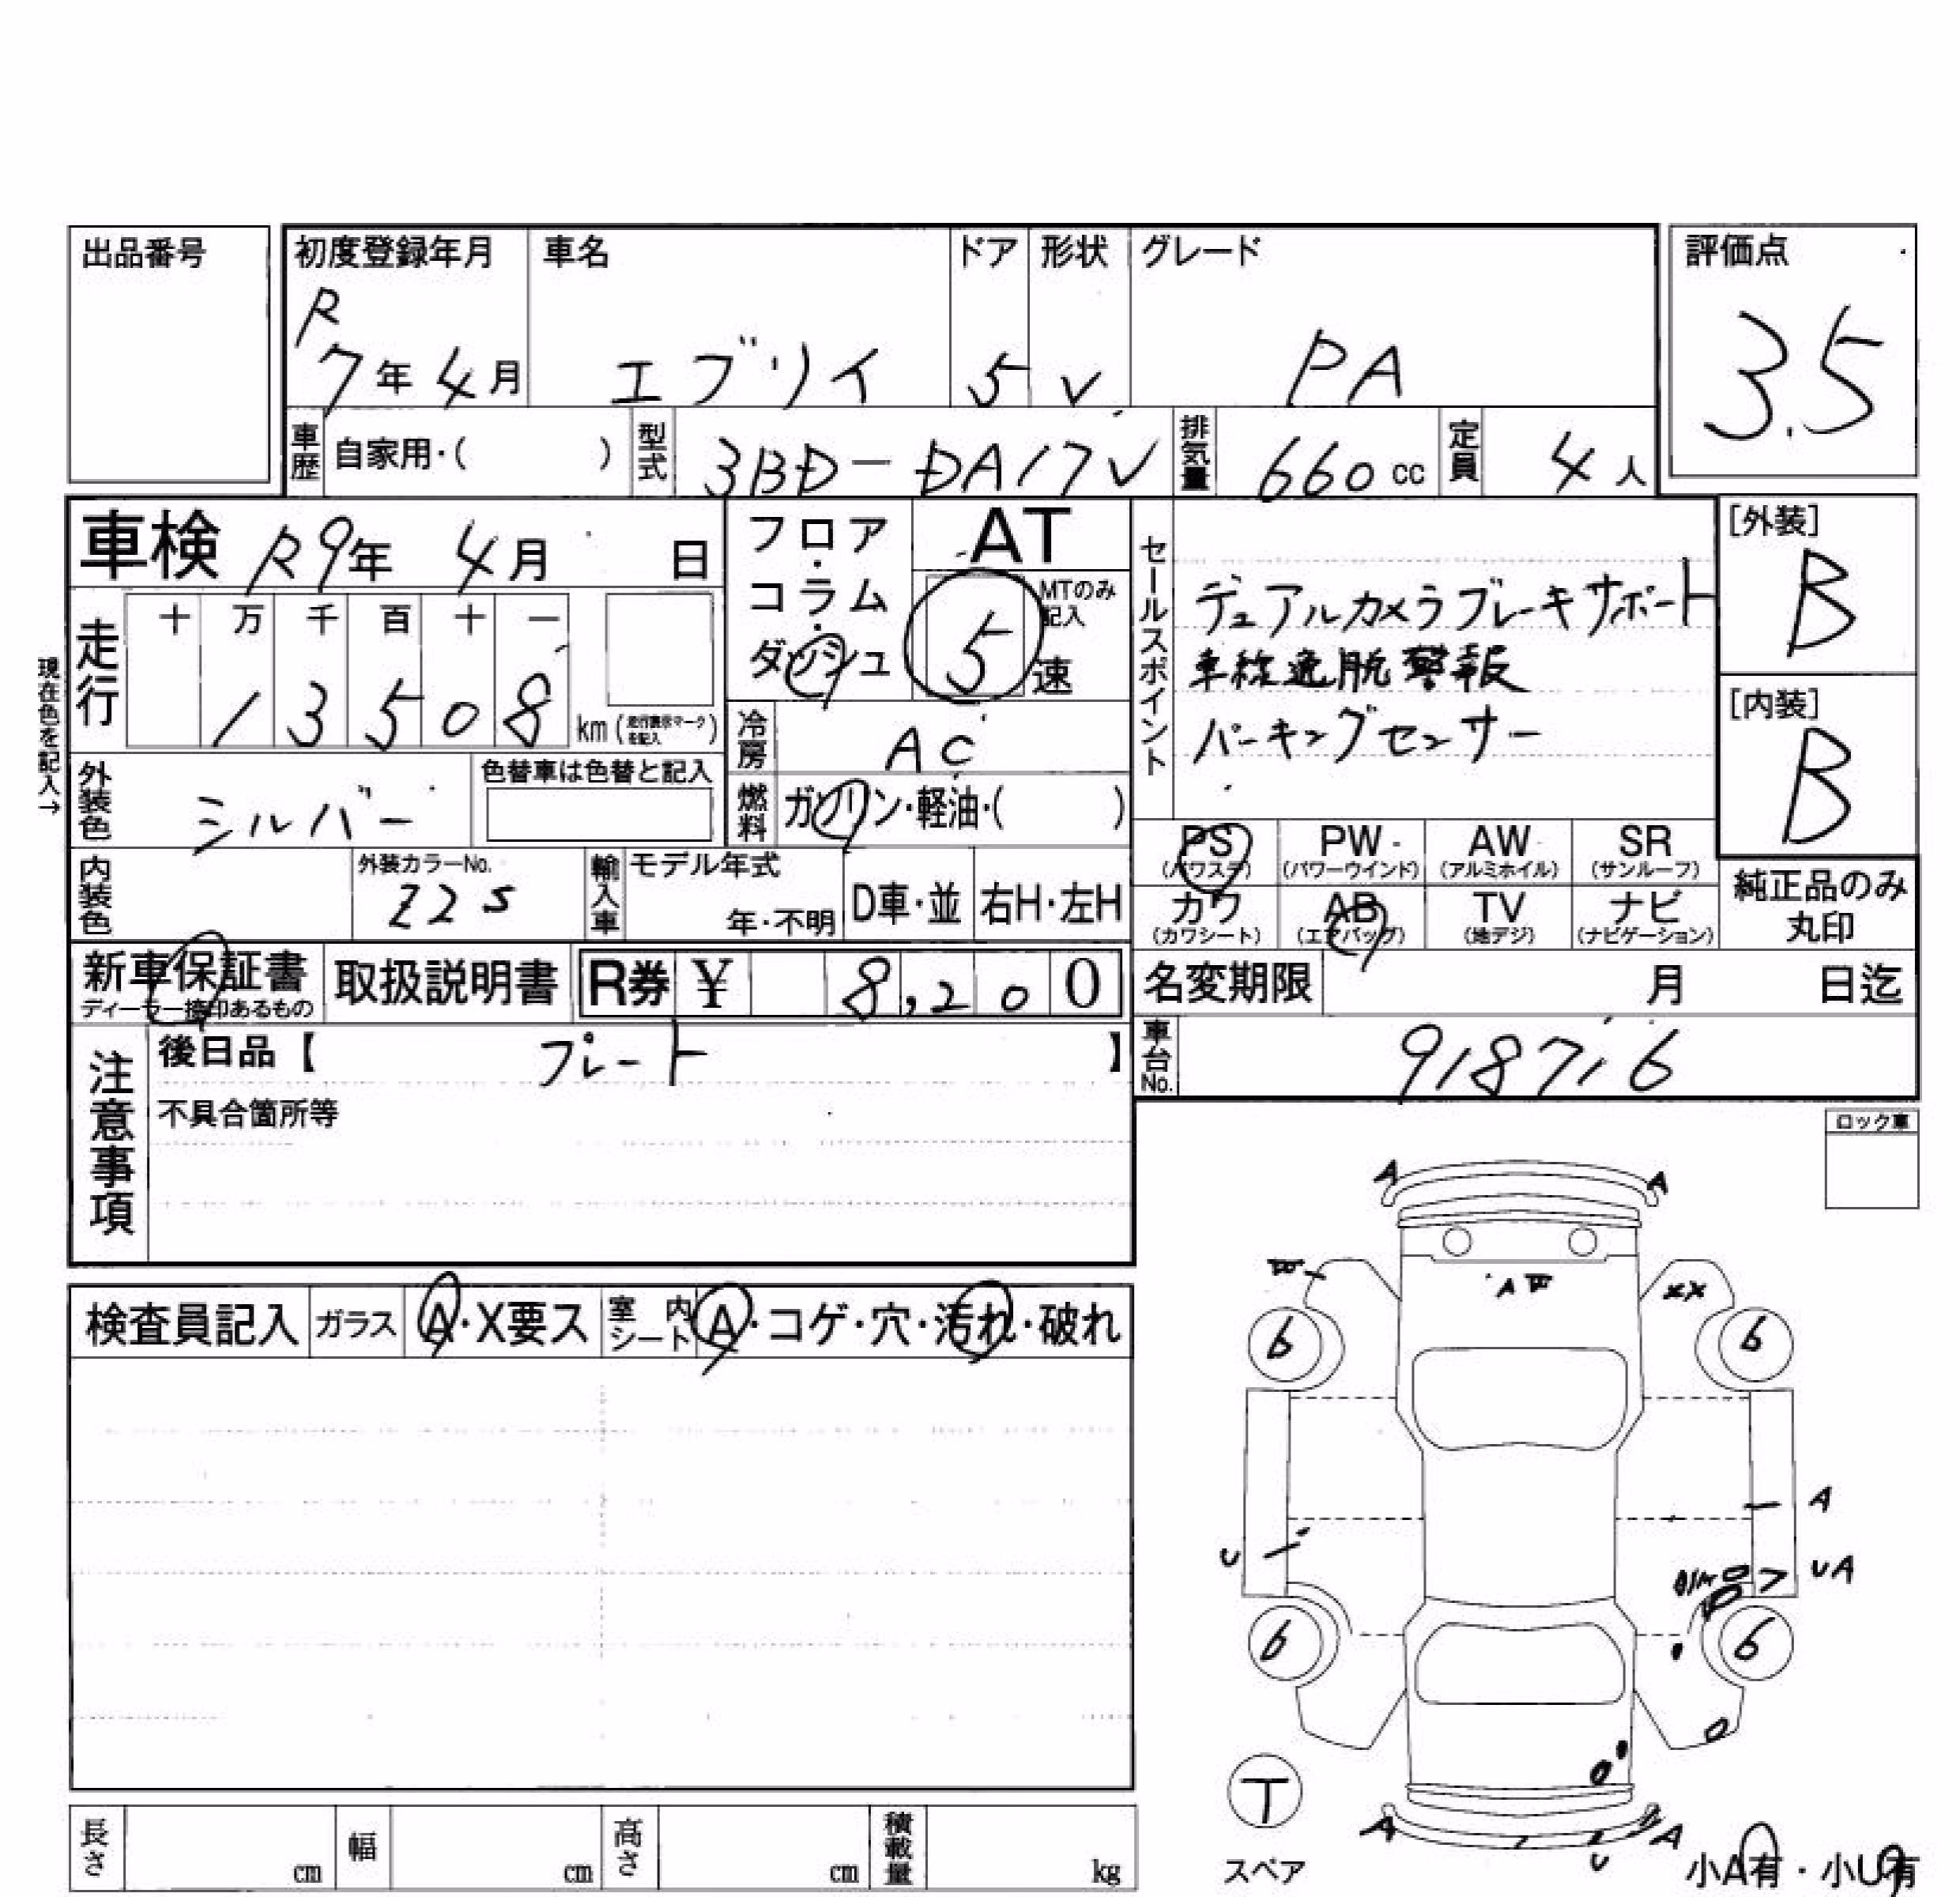 出品番号
初度登録年月 車名 ドア 形状 グレード 評価点
R
7年 4月 エブリイ 5 V PA 3.5
車歴 自家用・( ) 型式 3BD-DA17V 排気量 660cc 定員 4人
車検 R9年 4月 日 フロア・コラム・ダッシュ AT
5速 MTのみ記入
セールスポイント
デュアルカメラブレーキサポート
車線逸脱警報
パーキングセンサー
[外装]
B
[内装]
B
走行 十 万 千 百 十 一
1 3 5 0 8 km (走行表示マークを記入)
現在色を記入→
冷房 AC
燃料 ガソリン・軽油・( )
外装色 シルバー 色替車は色替と記入
内装色 外装カラーNo. Z2S 輸入車 モデル年式 年・不明 D車・並 右H・左H
PS (パワステ) PW (パワーウインド) AW (アルミホイル) SR (サンルーフ)
カワ (カワシート) AB (エアバッグ) TV (地デジ) ナビ (ナビゲーション)
純正品のみ
丸印
新車保証書 ディーラー捺印あるもの 取扱説明書 R券 ¥ 8,200
名変期限 月 日迄
車台No. 918716
注意事項
後日品【 プレート 】
不具合箇所等
ロック車
検査員記入 ガラス A・X要ス 室内シート A・コゲ・穴・汚れ・破れ
A A
A
XX
6 6
A
U
UA
6 6
T
スペア
A A
U
小A有・小U有
長さ cm 幅 cm 高さ cm 積載量 kg